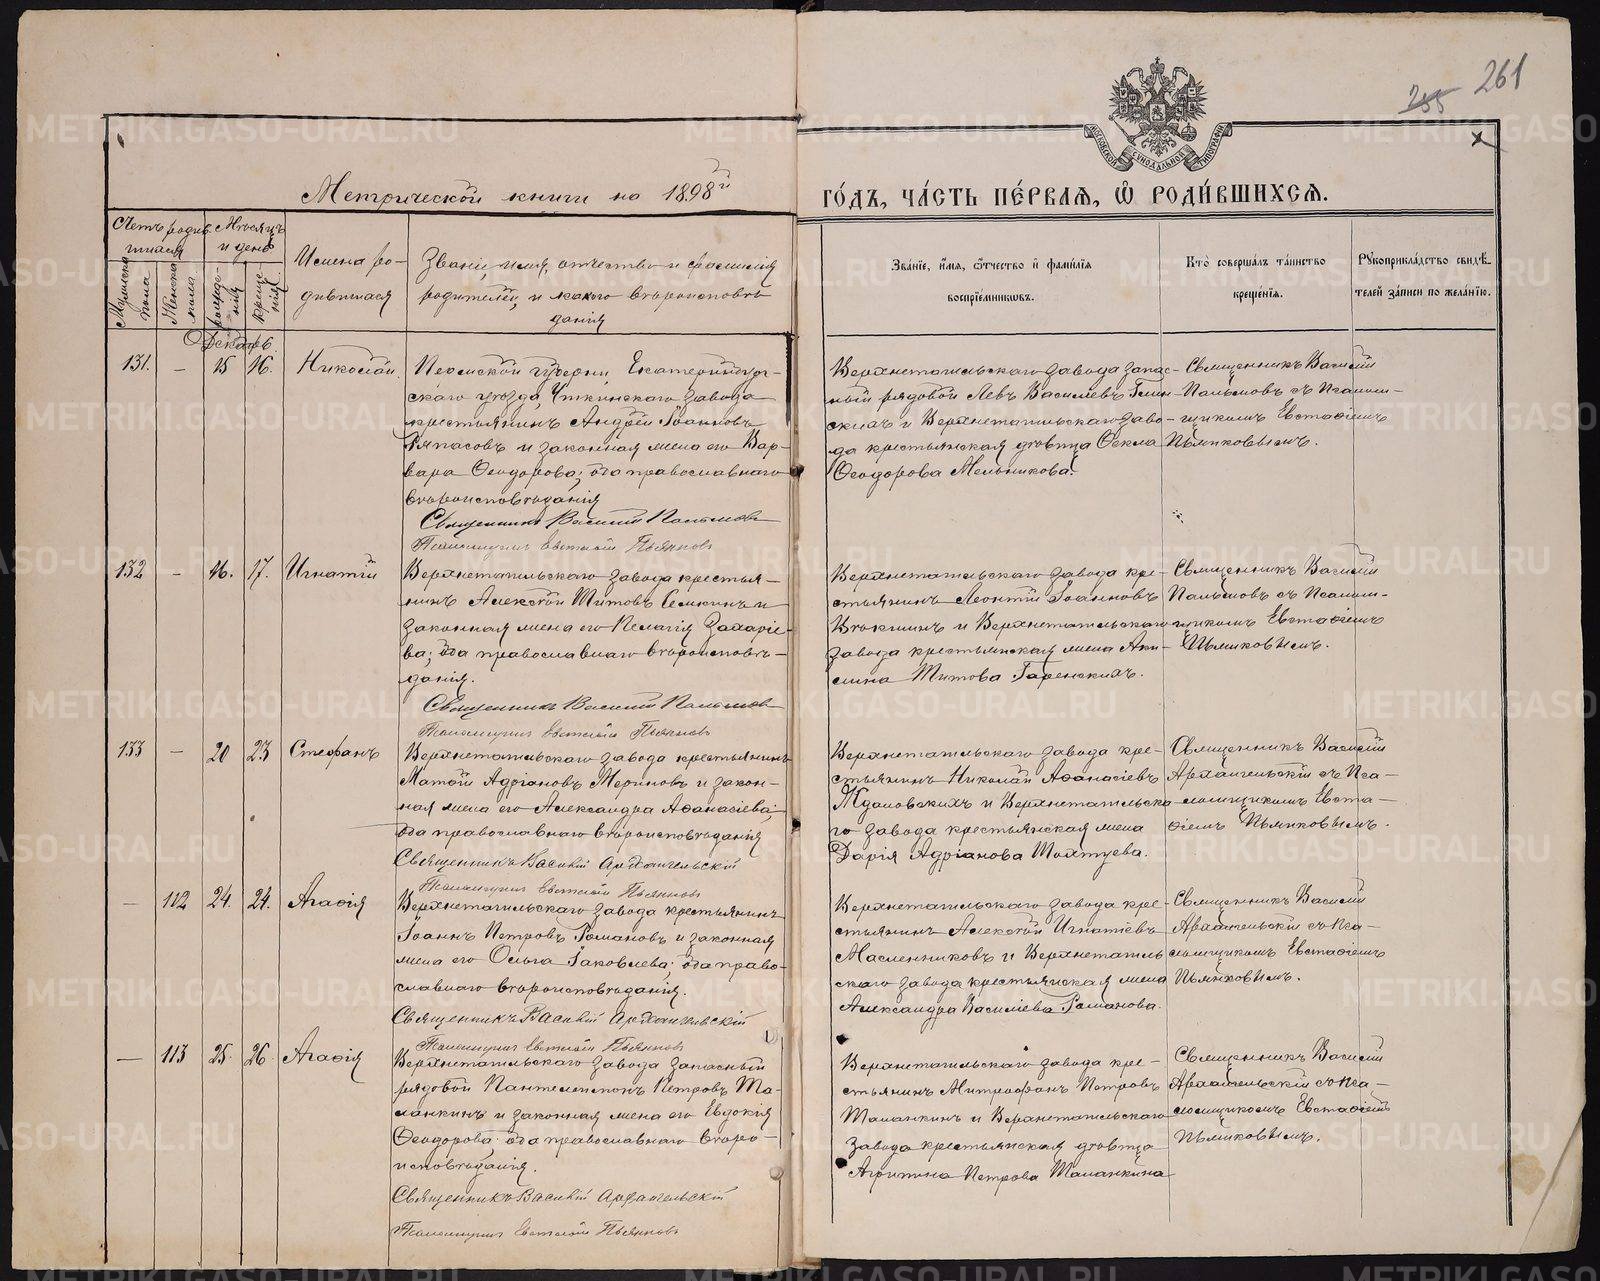 255 261
МОСКОВСКОЙ СѴНОДАЛЬНОЙ ТИПОГРАФІИ
Метрической книги на 1898й
ГО́ДЪ, ЧА́СТЬ ПЕ́РВАѦ, Ѿ РОДИ́ВШИХСѦ.
Счетъ родившихся
Мѣсяцъ и день
Мужска пола
Женска пола
рожденія
крещенія
Имена родившихся
Званіе, имя, отчество и фамилія
родителей, и какого вѣроисповѣ
данія
Зва́нїе, и́мѧ, ѻ҆́тчество и҆ фами́лїѧ
воспрїе́мниковъ.
Кто̀ соверша́лъ та́инство
креще́нїѧ.
Рꙋкоприкла́дство свидѣ́-
телей за́писи по жела́нїю.
Декабрь.
131. – 15 16. Николай.
Пермской губерніи, Екатеринбург-
скаго уѣзда, Уткинскаго завода
крестьянинъ Андрей Іоанновъ
и законная жена его Вар-
вара Ѳеодорова; оба православнаго
вѣроисповѣданія
Священникъ Василій Пальмовъ
Псаломщикъ Евстафій Пьянковъ
Верхнетагильскаго завода запас-
ный рядовой Левъ Василіевъ
и Верхнетагильскаго заво-
да крестьянская дѣвица Ѳекла
Ѳеодорова Мельникова.
Священникъ Василій
Пальмовъ съ Псалом-
щикомъ Евстафіемъ
Пьянковымъ.
132 – 16. 17. Игнатій
Верхнетагильскаго завода крестья-
нинъ Алексѣй Титовъ Семкинъ и
законная жена его Пелагія Захаріе-
ва; оба православнаго вѣроисповѣ-
данія.
Священникъ Василій Пальмовъ
Псаломщикъ Евстафій Пьянковъ
Верхнетагильскаго завода кре-
стьянинъ Леонтій Іоанновъ
и Верхнетагильскаго
завода крестьянская жена Аки-
лина Титова
Священникъ Василій
Пальмовъ съ Псалом-
щикомъ Евстафіемъ
Пьянковымъ.
133 – 20 23 Стефанъ
Верхнетагильскаго завода крестьянинъ
Матѳій Адріановъ Мериновъ и закон-
ная жена его Александра Аѳанасіева;
оба православнаго вѣроисповѣданія
Священникъ Василій Архангельскій
Псаломщикъ Евстафій Пьянковъ
Верхнетагильскаго завода кре-
стьянинъ Николай Аѳанасіевъ
Ждановскихъ и Верхнетагильска-
го завода крестьянская жена
Дарія Адріанова Шахтуева.
Священникъ Василій
Архангельскій съ Пса-
ломщикомъ Евста-
фіемъ Пьянковымъ.
– 112 24. 24. Агафія
Верхнетагильскаго завода крестьянинъ
Іоаннъ Петровъ Романовъ и законная
жена его Ольга Іаковлева; оба право-
славнаго вѣроисповѣданія.
Священникъ Василій Архангельскій
Псаломщикъ Евстафій Пьянковъ
Верхнетагильскаго завода кре-
стьянинъ Алексѣй Игнатіевъ
Масленниковъ и Верхнетагиль
скаго завода крестьянская жена
Александра Василіева Романова.
Священникъ Василій
Архангельскій съ Пса-
ломщикомъ Евстафіемъ
Пьянковымъ.
– 113 25. 26. Агафія
Верхнетагильскаго завода запасный
рядовой Пантелеимонъ Петровъ Ма-
ланкинъ и законная жена его Евдокія
Ѳеодорова; оба православнаго вѣро-
исповѣданія.
Священникъ Василій Архангельскій
Псаломщикъ Евстафій Пьянковъ
Верхнетагильскаго завода кре-
стьянинъ Митрофанъ Петровъ
Маланкинъ и Верхнетагильскаго
завода крестьянская дѣвица
Агрипина Петрова Маланкина
Священникъ Василій
Архангельскій съ Пса-
ломщикомъ Евстафіемъ
Пьянковымъ.
METRIKI.GASO-URAL.RU